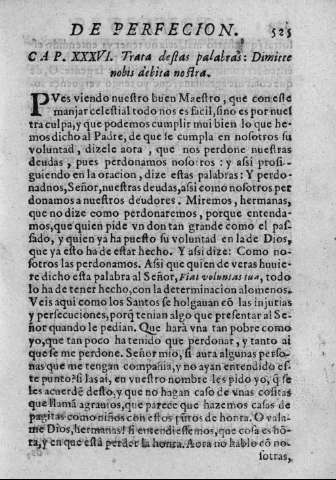 DE PERFECION. 525
CAP. XXXVI. Trata destas palabras: Dimitte
nobis debita nostra.
PVes viendo nuestro buen Maestro, que con este
manjar celestial todo nos es facil, sino es por nues
tra culpa, y que podemos cumplir mui bien lo que he-
mos dicho al Padre, de que se cumpla en nosotros su
voluntad, dizele aora, que nos perdone nuestras
deudas, pues perdonamos nosotros: y assi prosi-
guiendo en la oracion, dize estas palabras: Y perdo-
nadnos, Señor, nuestras deudas, assi como nosotros per
donamos a nuestros deudores. Miremos, hermanas,
que no dize como perdonaremos, porque entenda-
mos, que quien pide vn don tan grande como el pas-
sado, y quien ya ha puesto su voluntad en la de Dios,
que ya esto ha de estar hecho. Y assi dize: Como no-
sotros las perdonamos. Assi que quien de veras huuie
re dicho esta palabra al Señor, Fiat voluntas tua, todo
lo ha de tener hecho, con la determinacion alomenos.
Veis aqui como los Santos se holgauan cõ las injurias
y persecuciones, porq̃ tenian algo que presentar al Se-
ñor quando le pedian. Que harà vna tan pobre como
yo, que tan poco ha tenido que perdonar, y tanto ai
que se me perdone. Señor mio, si aura algunas perso-
nas que me tengan compañia, y no ayan entendido es-
te punto? si las ai, en vuestro nombre les pido yo, q̃ se
les acuerde desto, y que no hagan caso de vnas cosas
que llamã agrauios, que parece que hazemos casas de
pagitas como niños con estos puntos de honra. O vala-
me Dios, hermanas! si entendiessemos, que cosa es hõ-
ra, y en que està perder la honra. Aora no hablo cõ no-
sotras,